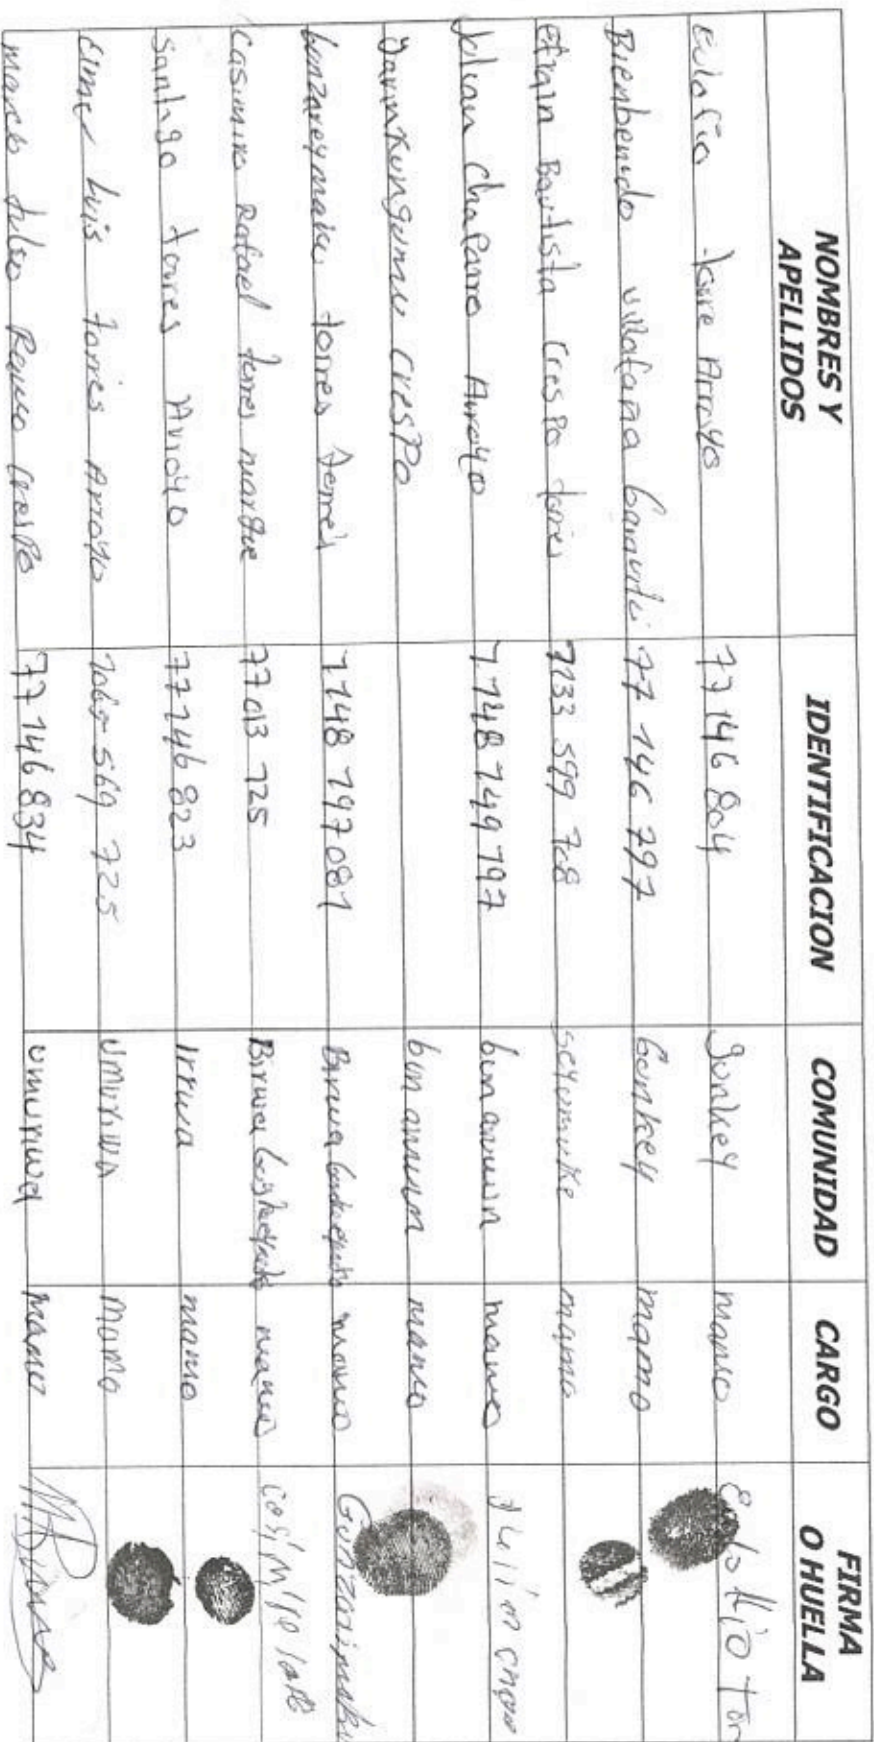 NOMBRES Y APELLIDOS IDENTIFICACION COMUNIDAD CARGO FIRMA O HUELLA
Eulafio torre Arroyo 77 146 804 gunkey mamo
Bienbenudo villafaña 77 146 797 Gunkey mamo
efrain Bautista Crespo torres 7133 599 708 seyumuke mamo
Julian chaparro Arroyo 7.148 149 797 bunaruwn mamo
crespo bunaruwn mamo
torres torres 7148 797 087 Birwa mamo
Casimiro Rafael torres marque 77 013 725 Birwa mamo
Santigo torres Arroyo 77746 823 Irrwa mamo
elmer Luis torres Arroyo 7065 569 725 umuriwa mamo
marco tulio Ramo crespo 77 746 834 umuriwa mamo